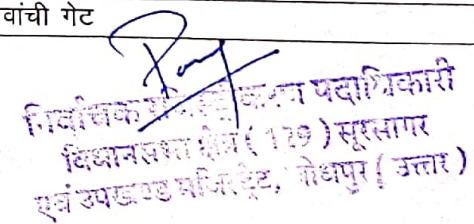 वांची गेट
निर्वाचक पदाधिकारी
विधानसभा क्षेत्र ( 129 ) सूरसागर
एवं उपखण्ड मजिस्ट्रेट, जोधपुर ( उत्तर )